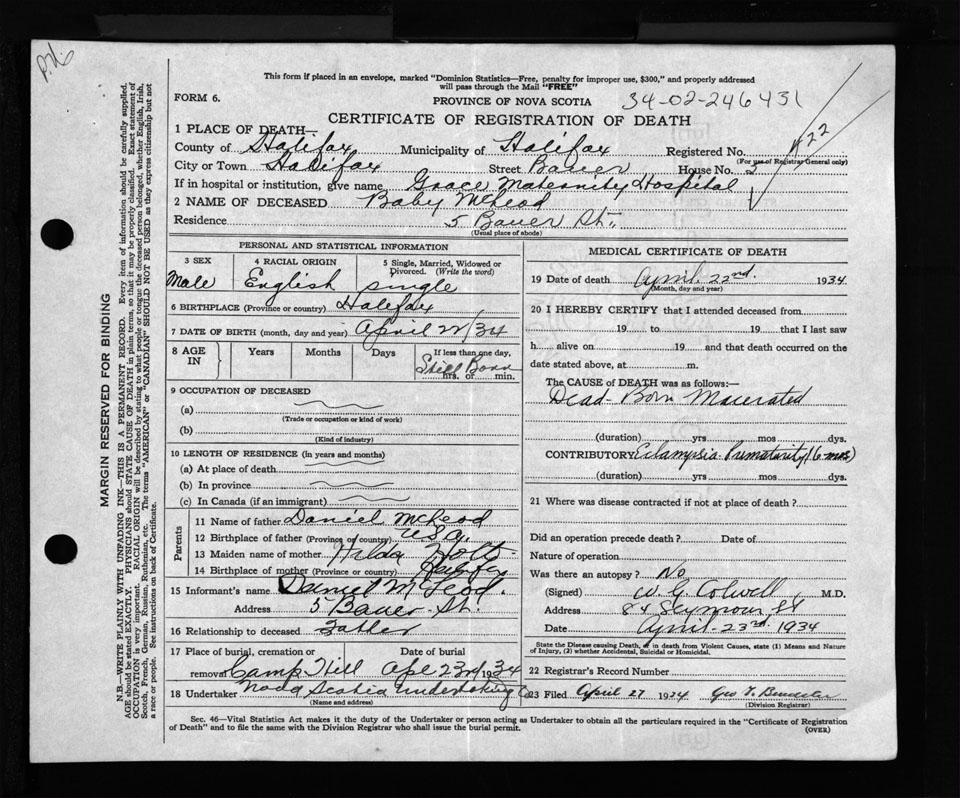 P.N.
This form if placed in an envelope, marked "Dominion Statistics—Free, penalty for improper use, $300," and properly addressed
will pass through the Mail "FREE"
FORM 6.
PROVINCE OF NOVA SCOTIA
34-02-246431
CERTIFICATE OF REGISTRATION OF DEATH
422
1 PLACE OF DEATH—
County of Halifax Municipality of Halifax Registered No.
(For use of Registrar General only)
City or Town Halifax Street Bauer House No. 5
If in hospital or institution, give name Grace Maternity Hospital
2 NAME OF DECEASED Baby McLeod
Residence 5 Bauer St.,
(Usual place of abode)
PERSONAL AND STATISTICAL INFORMATION
3 SEX 4 RACIAL ORIGIN 5 Single, Married, Widowed or
Divorced. (Write the word)
Male English single
6 BIRTHPLACE (Province or country) Halifax
7 DATE OF BIRTH (month, day and year) April 22/34
8 AGE IN Years Months Days If less than one day,
Still Born
hrs. or min.
9 OCCUPATION OF DECEASED
(a)
(Trade or occupation or kind of work)
(b)
(Kind of industry)
10 LENGTH OF RESIDENCE (in years and months)
(a) At place of death
(b) In province
(c) In Canada (if an immigrant)
Parents
11 Name of father Daniel McLeod
12 Birthplace of father (Province or country) U.S.A.
13 Maiden name of mother Hilda Holt
14 Birthplace of mother (Province or country) Halifax
15 Informant's name Daniel McLeod.
Address 5 Bauer St.
16 Relationship to deceased Father
17 Place of burial, cremation or Date of burial
removal Camp Hill Apl 23rd 1934
18 Undertaker Nova Scotia Undertaking Co
(Name and address)
MEDICAL CERTIFICATE OF DEATH
19 Date of death April 22nd. 1934
(Month, day and year)
20 I HEREBY CERTIFY that I attended deceased from
19 to 19 that I last saw
h alive on 19 and that death occurred on the
date stated above, at m.
The CAUSE of DEATH was as follows:—
Dead-Born Macerated
(duration) yrs mos dys.
CONTRIBUTORY Eclampsia Prematurity (6 mos)
(duration) yrs mos dys.
21 Where was disease contracted if not at place of death?
Did an operation precede death? Date of
Nature of operation
Was there an autopsy? No
(Signed) W. G. Colwell M.D.
Address 84 Seymour St
Date April-23rd. 1934
State the Disease causing Death, or in death from Violent Causes, state (1) Means and Nature
of Injury, (2) whether Accidental, Suicidal or Homicidal.
22 Registrar's Record Number
23 Filed April 27 1934 Geo
(Division Registrar)
Sec. 46—Vital Statistics Act makes it the duty of the Undertaker or person acting as Undertaker to obtain all the particulars required in the "Certificate of Registration
of Death" and to file the same with the Division Registrar who shall issue the burial permit.
(OVER)
MARGIN RESERVED FOR BINDING
N.B.—WRITE PLAINLY WITH UNFADING INK—THIS IS A PERMANENT RECORD. Every item of information should be carefully supplied.
AGE should be stated EXACTLY. PHYSICIANS should STATE CAUSE OF DEATH in plain terms, so that it may be properly classified. Exact statement of
OCCUPATION is very important. RACIAL ORIGIN will be described by stating to what people or tongue the deceased person belonged, whether English, Irish,
Scotch, French, German, Russian, Ruthenian, etc. The terms "AMERICAN" or "CANADIAN" SHOULD NOT BE USED as they express citizenship but not
a race or people. See instructions on back of Certificate.